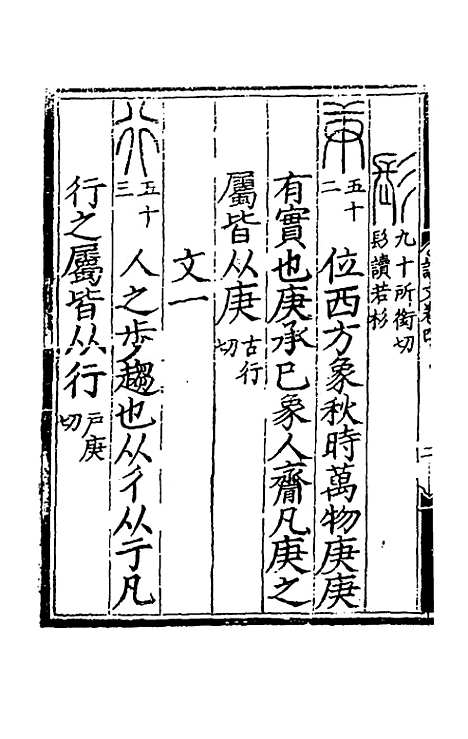 九十所銜切
髟讀若杉
庚 五十二 位西方象秋時萬物庚庚
有實也庚承己象人齎凡庚之
屬皆从庚 古行切
文一
行 五十三 人之步趨也从彳从亍凡
行之屬皆从行 戶庚切